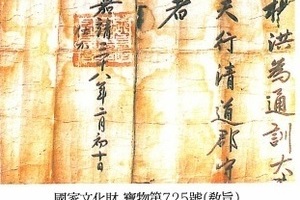 洪為通訓大
夫行清道郡守
者
嘉靖二十八年二月初十日
國家文化財 寶物第725號(敎旨)